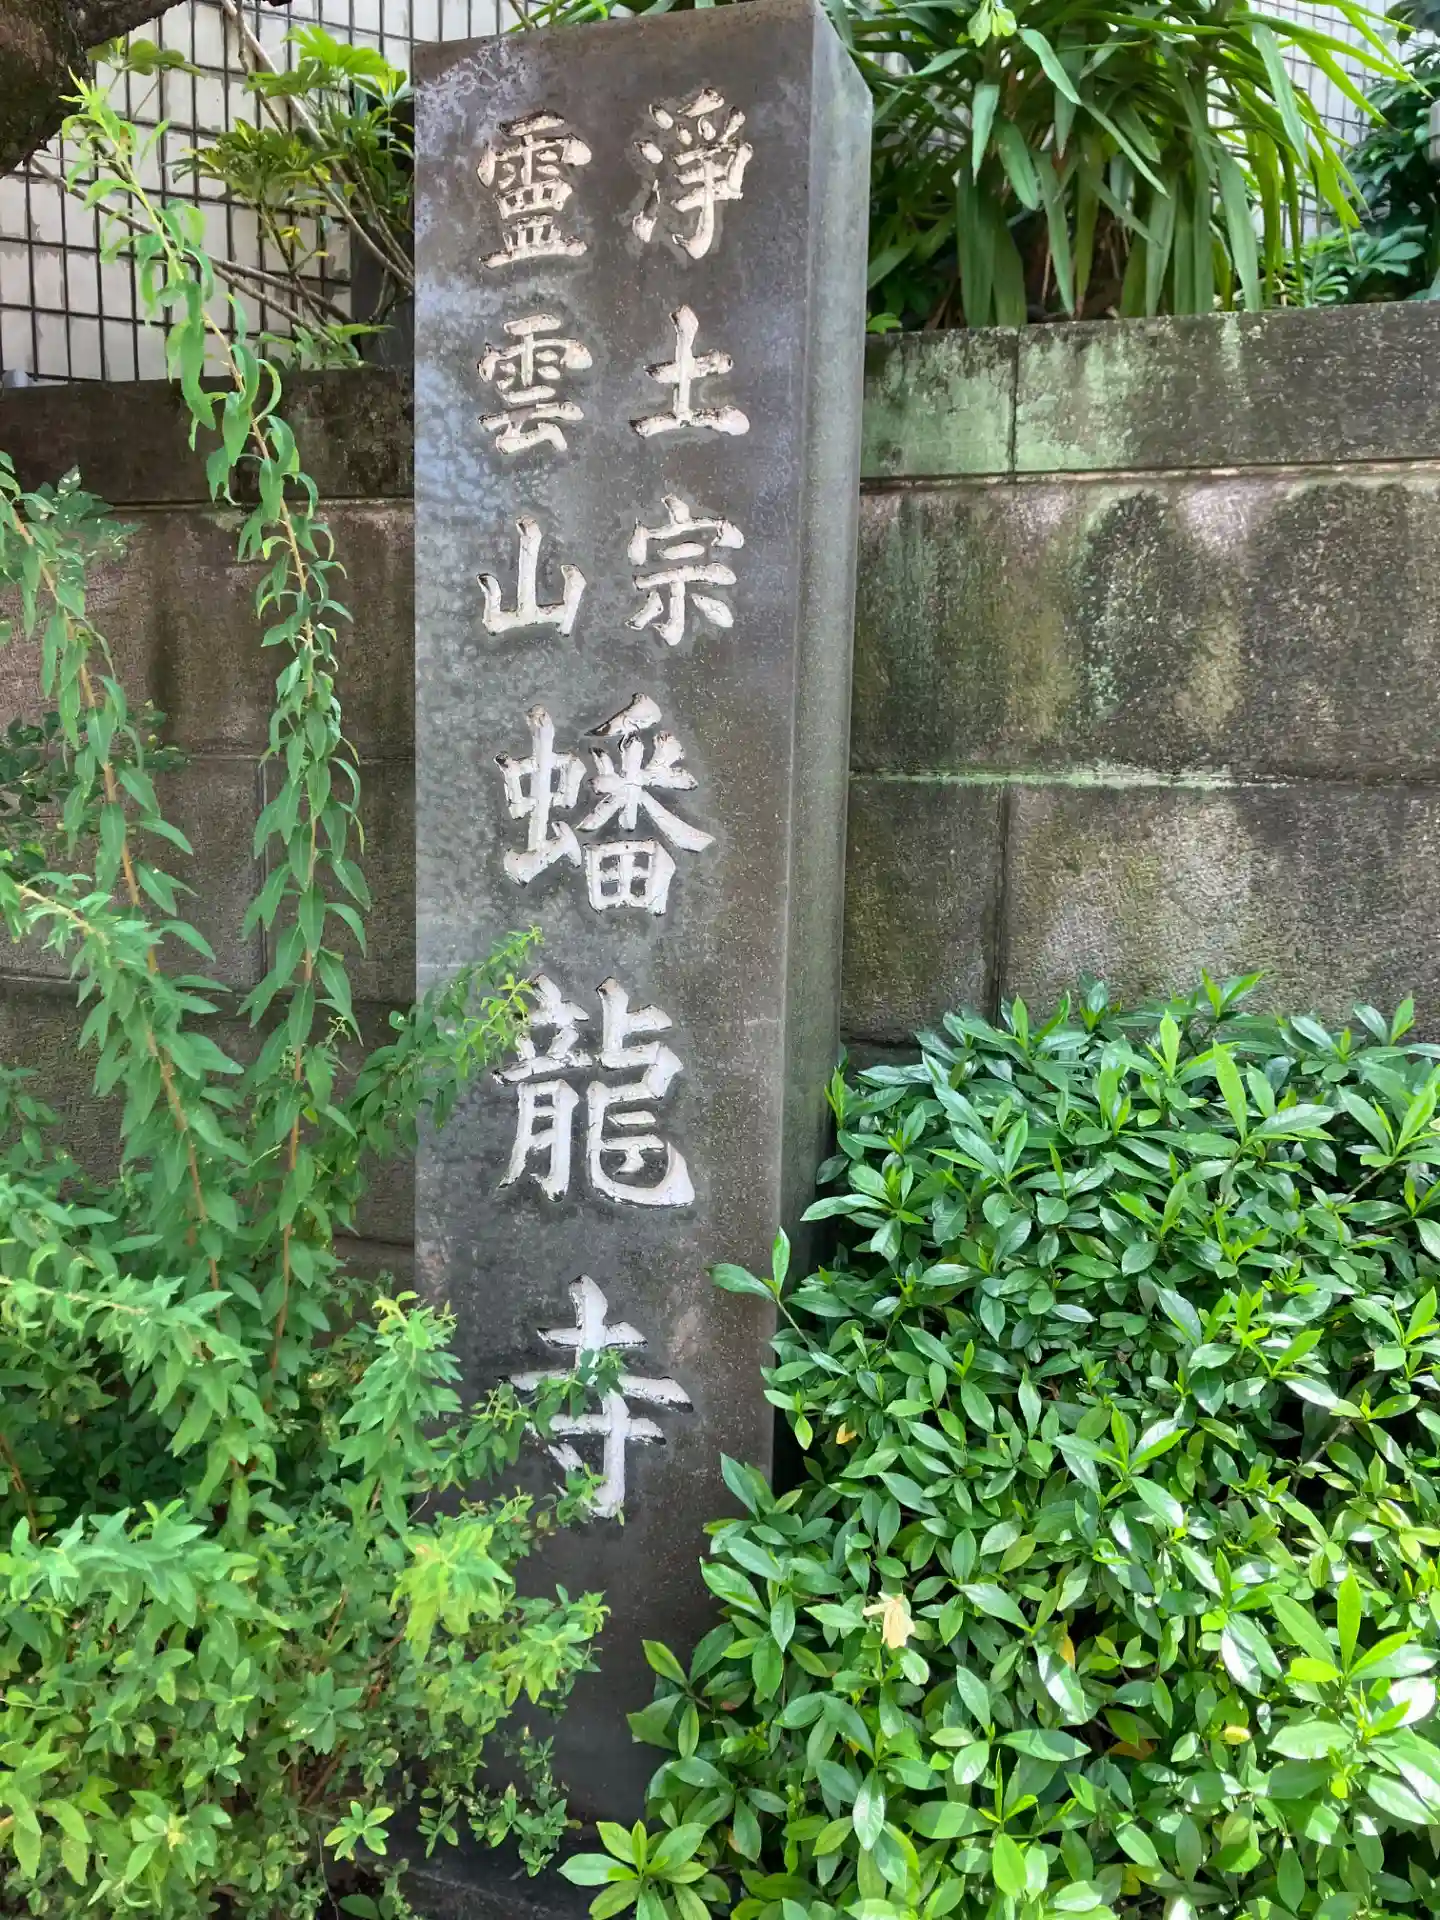 淨土宗
霊雲山
蟠龍寺